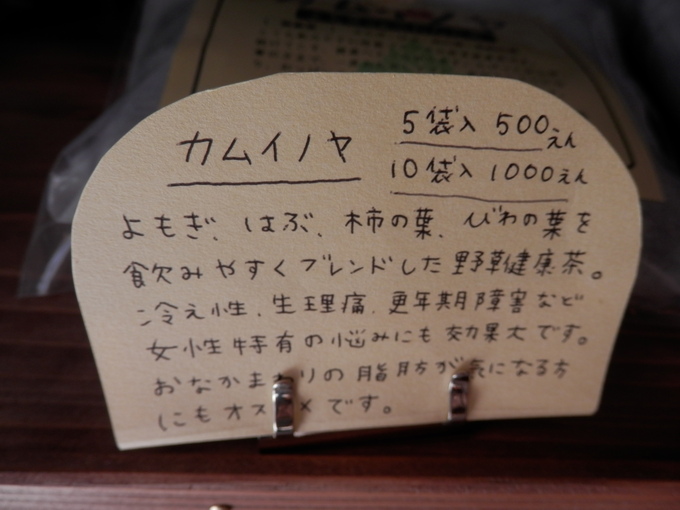 カムイノヤ
5袋入 500えん
10袋入 1000えん
よもぎ、はぶ、柿の葉、びわの葉を
飲みやすくブレンドした野草健康茶。
冷え性、生理痛、更年期障害など
女性特有の悩みにも効果大です。
おなかまわりの脂肪が気になる方
にもオススメです。